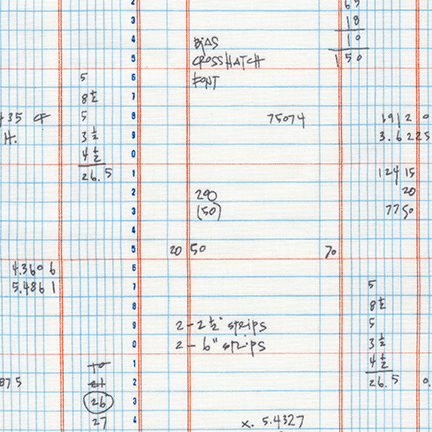 65
18
10
150
BIAS
CROSSHATCH
FONT
5
8 1/2
5
3 1/2
4 1/2
26.5
435 CF
H.
75074
1912 0
3.6225
124 15
20
7750
200
(50)
20 50 70
4.3606
5.4861
2 - 2 1/2" strips
2 - 6" strips
5
8 1/2
5
3 1/2
4 1/2
26.5 0.
875
26
27
x. 5.4327
2
3
4
5
6
7
8
9
0
1
2
3
4
5
6
7
8
9
0
1
2
3
4